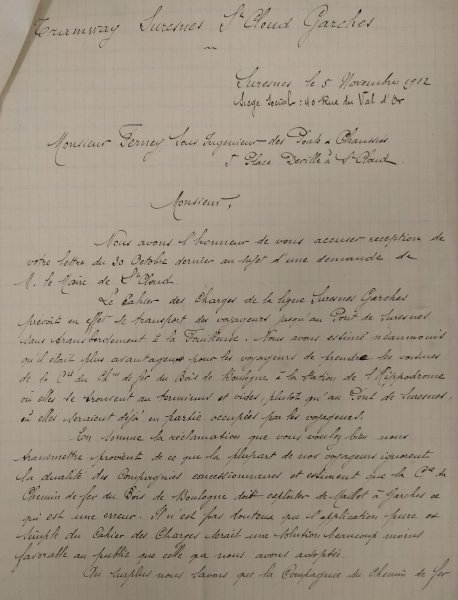 Tramway Suresnes St Cloud Garches
Suresnes le 5 Novembre 1912
Siège Social : 40 Rue du Val d'Or
Monsieur Ferney Sous Ingénieur des Ponts & Chaussées
5 Place Deville à St Cloud.
Monsieur,
Nous avons l'honneur de vous accuser réception de
votre lettre du 30 Octobre dernier au sujet d'une demande de
M. le Maire de St Cloud.
Le Cahier des Charges de la ligne Suresnes Garches
prévoit en effet le transport des voyageurs jusqu'au Pont de Suresnes
sans transbordement à la Fouilleuse. Nous avons estimé néanmoins
qu'il était plus avantageux pour les voyageurs de prendre les voitures
de la Cie du Ch. de fer du Bois de Boulogne à la Station de l'Hippodrome
où elles se trouvent au terminus et vides, plutôt qu'au Pont de Suresnes,
où elles seraient déjà en partie occupées par les voyageurs.
En somme la réclamation que vous voulez bien nous
transmettre provient de ce que la plupart de nos voyageurs ignorent
la dualité des Compagnies concessionnaires et estiment que la Cie du
Chemin de fer du Bois de Boulogne doit exploiter de Maillot à Garches ce
qui est une erreur. Il n'est pas douteux que l'application pure et
simple du Cahier des Charges serait une solution beaucoup moins
favorable au public que celle que nous avons adoptée.
Au surplus nous savons que la Compagnie du Chemin de fer